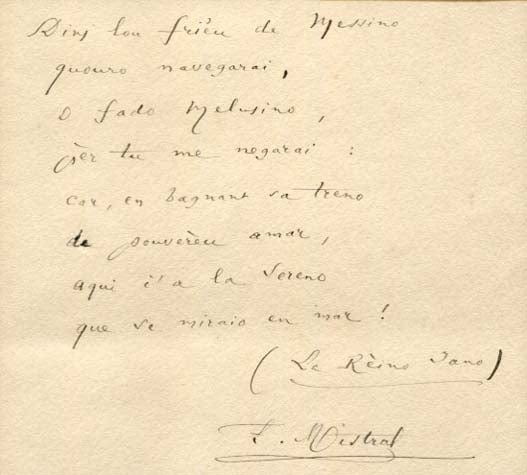 Dins lou friéu de Messino
quouro navegarai,
o fado Melusino,
pèr tu me negarai :
car, en bagnant sa treno
de pouverèu amar,
aqui i'a la Sereno
que se miraio en mar !
(La Rèino Jano)
F. Mistral